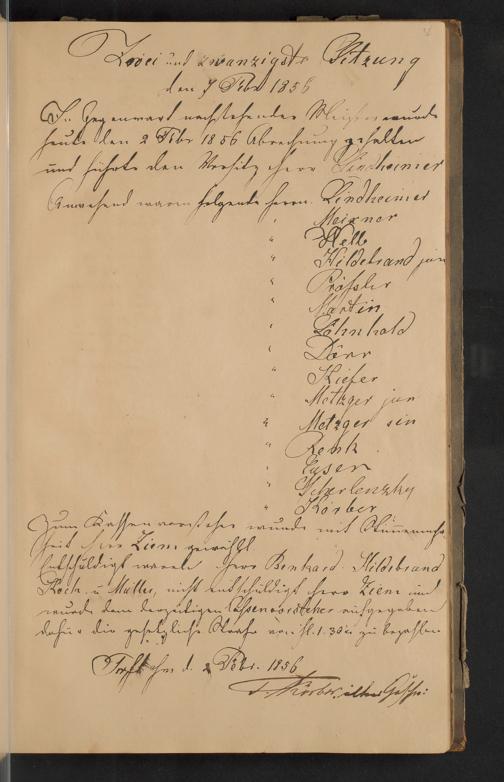 Zwei und zwanzigste Sitzung
den 2 Febr 1856
In Gegenwart nachstehender Meister wurde
heute den 2 Febr 1856 Abrechnung gehalten
und führte den Vorsitz Herr Lindheimer
Anwesend waren folgende Herrn. Lindheimer
" Meixner
" Helb
" Hildebrand jun
" Prößler
" Martin
" Löhnhold
" Dörr
" Kiefer
" Metzger jun
" Metzger sin
" Renk
" Eysen
" Scharlenzky
" Körber
Zum Kassenvorsteher wurde mit Stimmenmehr
heit Herr Ziem gewählt
Entschuldigt waren Herr Bernhard. Hildebrand
Koch. u Müller, nicht entschuldigt Herr Ziem und
wurde dem derzeitigen Cassenvorsteher aufgegeben
dafür die gesetzliche Strafe von fl. 1. 30 x zu bezahlen
d. 2 Febr. 1856
Körber